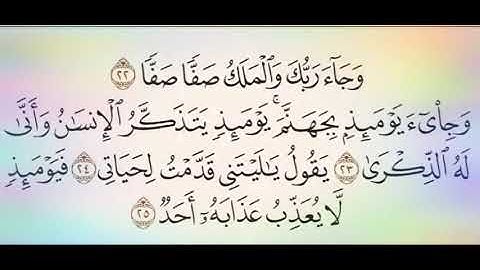 وَجَآءَ رَبُّكَ وَٱلْمَلَكُ صَفًّا صَفًّا ٢٢
وَجِا۟ىٓءَ يَوْمَئِذٍۭ بِجَهَنَّمَ ۚ يَوْمَئِذٍ يَتَذَكَّرُ ٱلْإِنسَٰنُ وَأَنَّىٰ
لَهُ ٱلذِّكْرَىٰ ٢٣ يَقُولُ يَٰلَيْتَنِى قَدَّمْتُ لِحَيَاتِى ٢٤ فَيَوْمَئِذٍ
لَّا يُعَذِّبُ عَذَابَهُۥٓ أَحَدٌ ٢٥